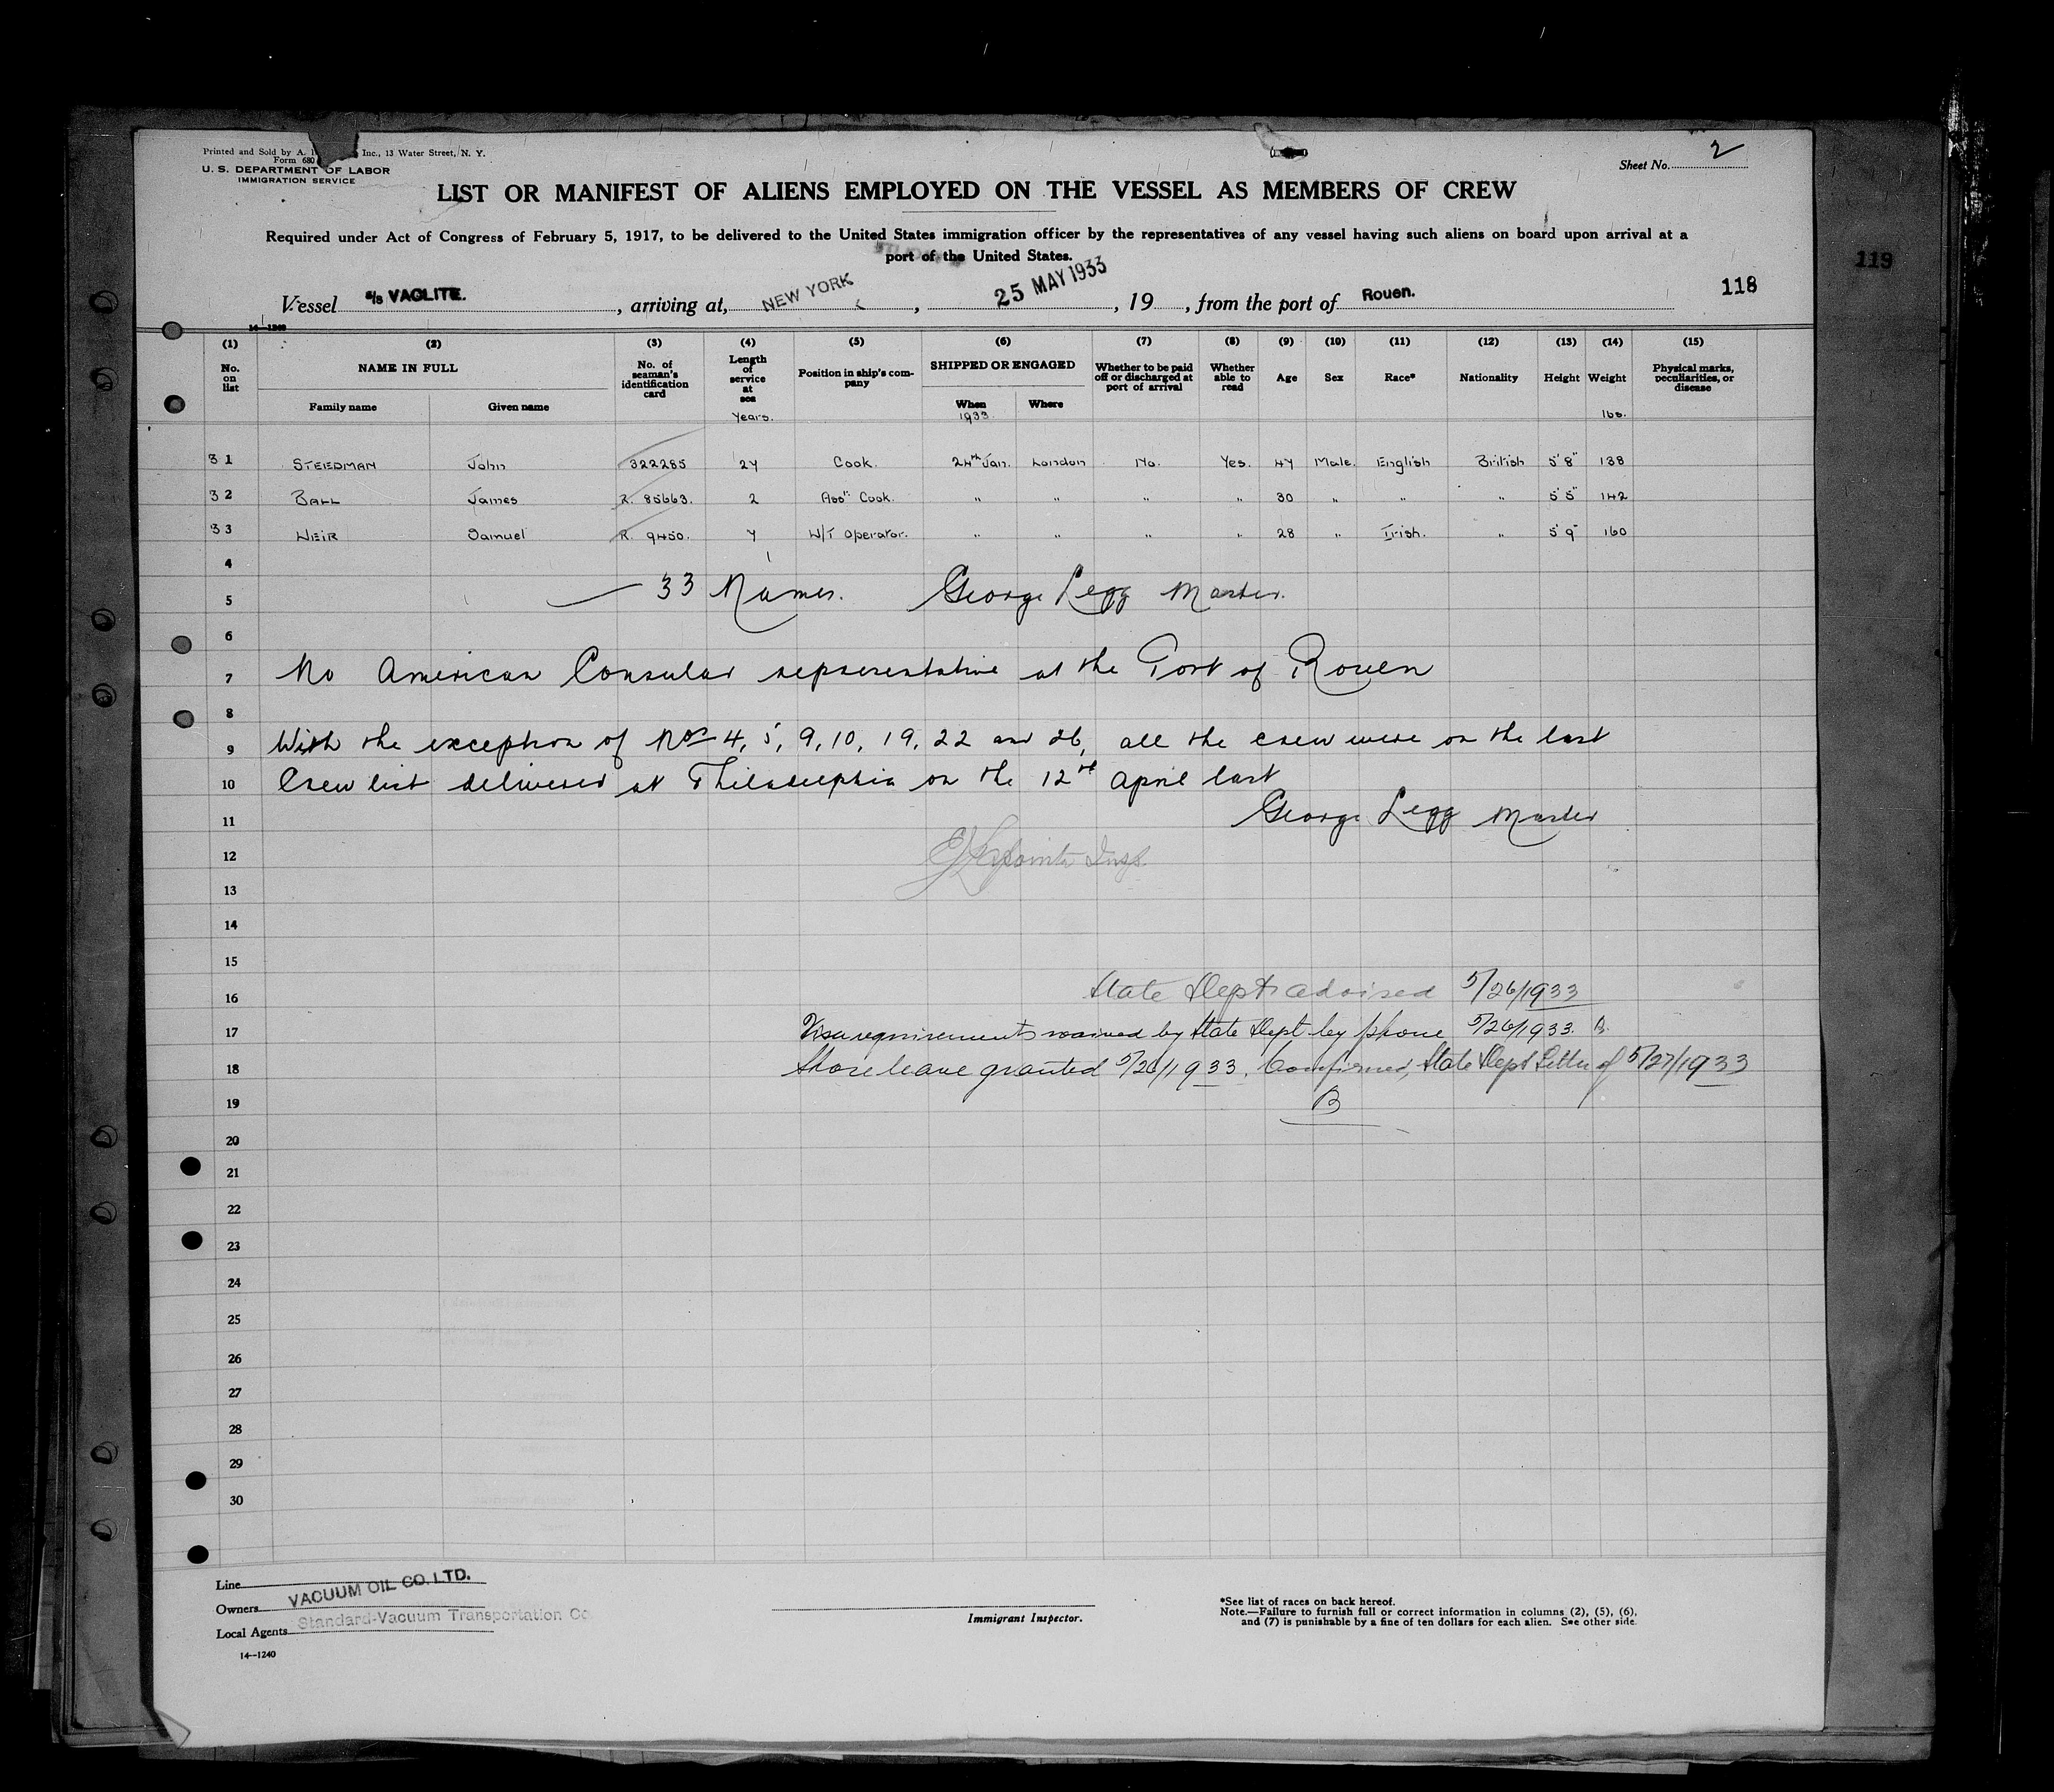 Printed and Sold by A. Inc., 13 Water Street, N. Y.
Form 680
U. S. DEPARTMENT OF LABOR
IMMIGRATION SERVICE
Sheet No. 2
LIST OR MANIFEST OF ALIENS EMPLOYED ON THE VESSEL AS MEMBERS OF CREW
Required under Act of Congress of February 5, 1917, to be delivered to the United States immigration officer by the representatives of any vessel having such aliens on board upon arrival at a
port of the United States.
119
Vessel s/s VACLITE. , arriving at, NEW YORK , 25 MAY 1933 , 19 , from the port of Rouen.
118
14-1240
(1) (2) (3) (4) (5) (6) (7) (8) (9) (10) (11) (12) (13) (14) (15)
No. on list NAME IN FULL No. of seaman's identification card Length of service at sea Position in ship's company SHIPPED OR ENGAGED Whether to be paid off or discharged at port of arrival Whether able to read Age Sex Race* Nationality Height Weight Physical marks, peculiarities, or disease
Family name Given name Years. When 1933. Where lbs.
31 STEEDMAN John 322285 27 Cook. 24th Jan. London No. Yes. 47 Male. English British 5' 8" 138
32 BALL James R. 85663. 2 Asst: Cook. " " " " 30 " " " 5' 5" 142
33 WEIR Samuel R. 9450. 7 W/T Operator. " " " " 28 " Irish. " 5' 9" 160
4
33 Names. George Legg Master.
5
6
7 No American Consular representative at the Port of Rouen
8
9 With the exception of Nos 4, 5, 9, 10, 19, 22 and 26, all the crew were on the last
10 Crew list delivered at Philadelphia on the 12th April last
11 George Legg Master
12 Insp.
13
14
15
16 State Dept advised 5/26/1933
17 Visa requirements waived by State Dept by phone 5/26/1933. B.
18 Shore leave granted 5/26/1933. Confirmed, State Dept Letter of 5/27/1933
19 B
20
21
22
23
24
25
26
27
28
29
30
Line
Owners VACUUM OIL CO. LTD.
Local Agents Standard-Vacuum Transportation Co
14--1240
Immigrant Inspector.
*See list of races on back hereof.
Note.—Failure to furnish full or correct information in columns (2), (5), (6),
and (7) is punishable by a fine of ten dollars for each alien. See other side.